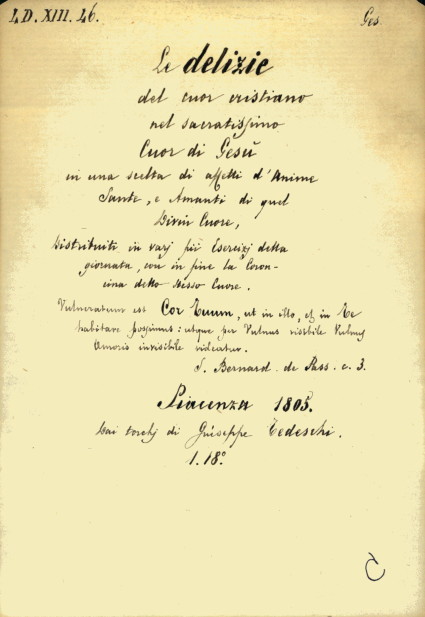 LD. XIII. 46.
Ges.
Le delizie
del cuor cristiano
nel sacratissimo
Cuor di Gesù
in una scelta di affetti d'Anime
Sante, e Amanti di quel
Divin Cuore,
Distribuiti in varj pii Esercizj della
giornata, con in fine la Coron-
cina dello stesso Cuore.
Vulneratum est Cor Tuum, ut in illo, et in Te
habitare possimus: utque per Vulnus visibile Vulnus
Amoris invisibile videatur.
S. Bernard. de Pass. c. 3.
Piacenza 1805.
Dai torchj di Giuseppe Tedeschi.
1. 18.º